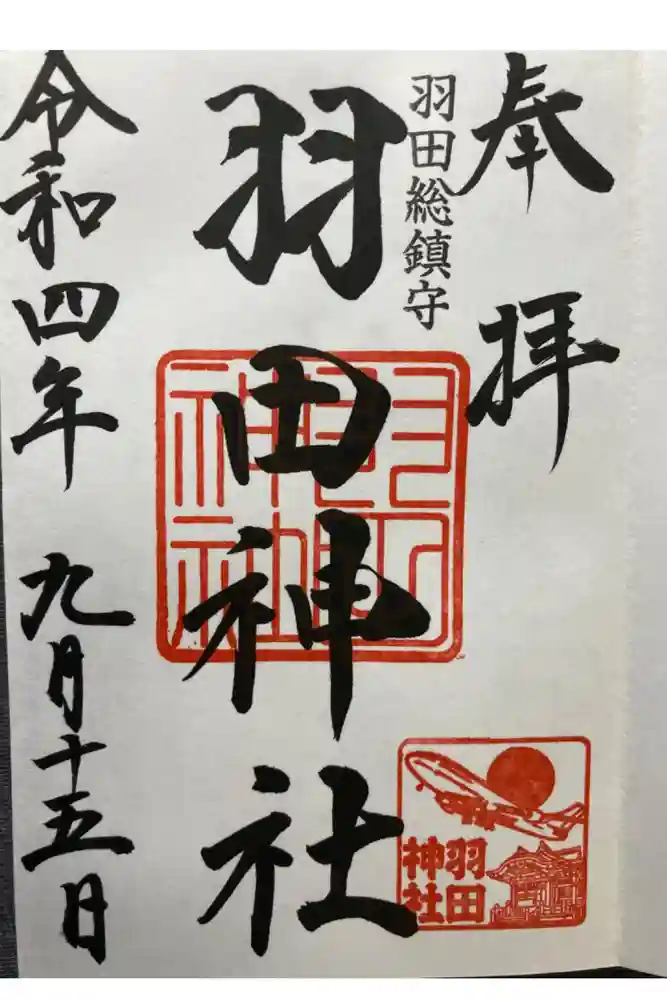 奉拝
羽田総鎮守
羽田神社
令和四年九月十五日
羽田
神社